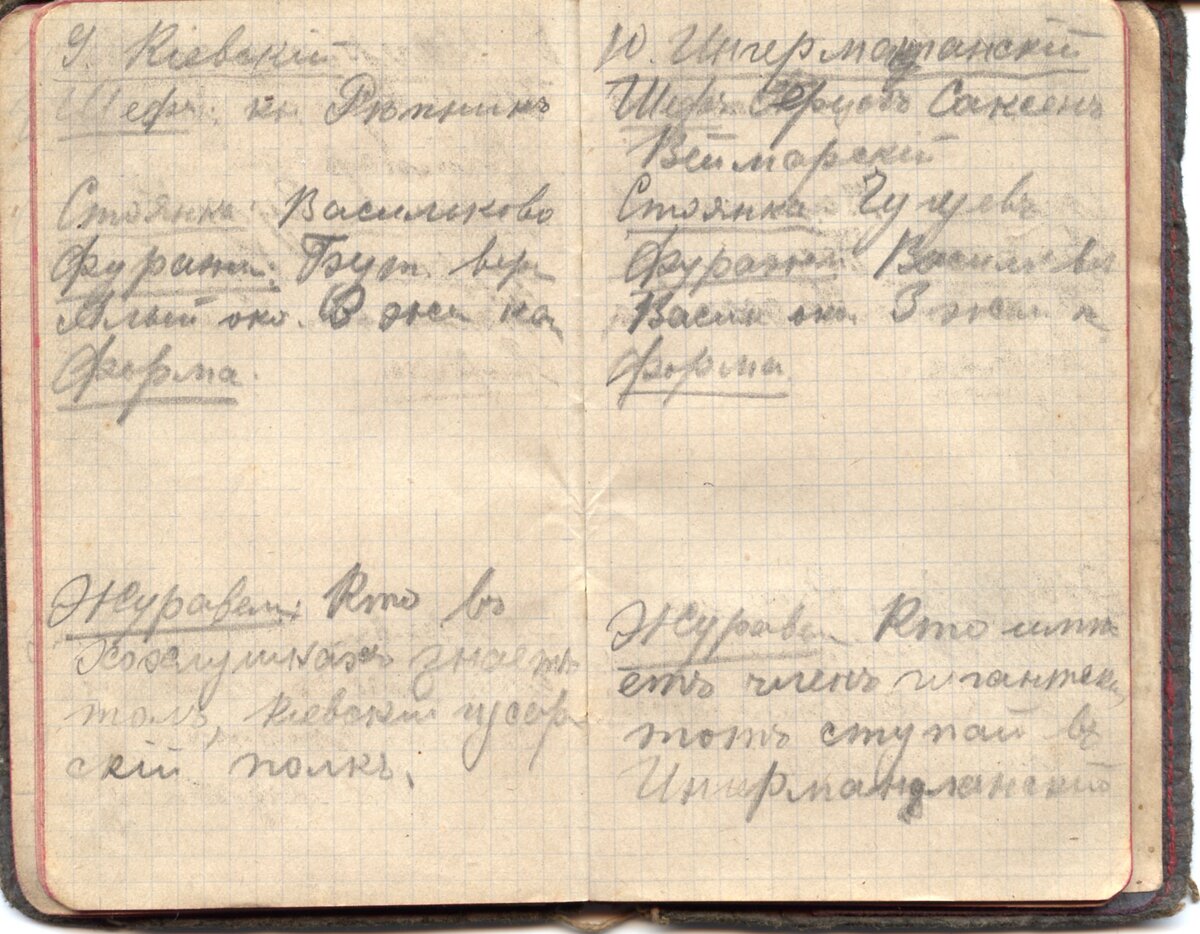 9. Кіевскій
Шефъ: кн. Рѣпнинъ
Стоянка: Васильково
Фуражка:
Алый око. В
Форма.
Журавель: Кто въ
хохлушкахъ знаетъ
толкъ, Кіевскій гусар
скій полкъ.
10. Ингерманланскій
Шефъ Герцогъ Саксенъ
Веймарскій
Стоянка Чугуевъ
Фуражка Василь
Васил око З
Форма
Журавель Кто имѣ
етъ членъ гигантскі
тотъ ступай въ
Ингерманланскій